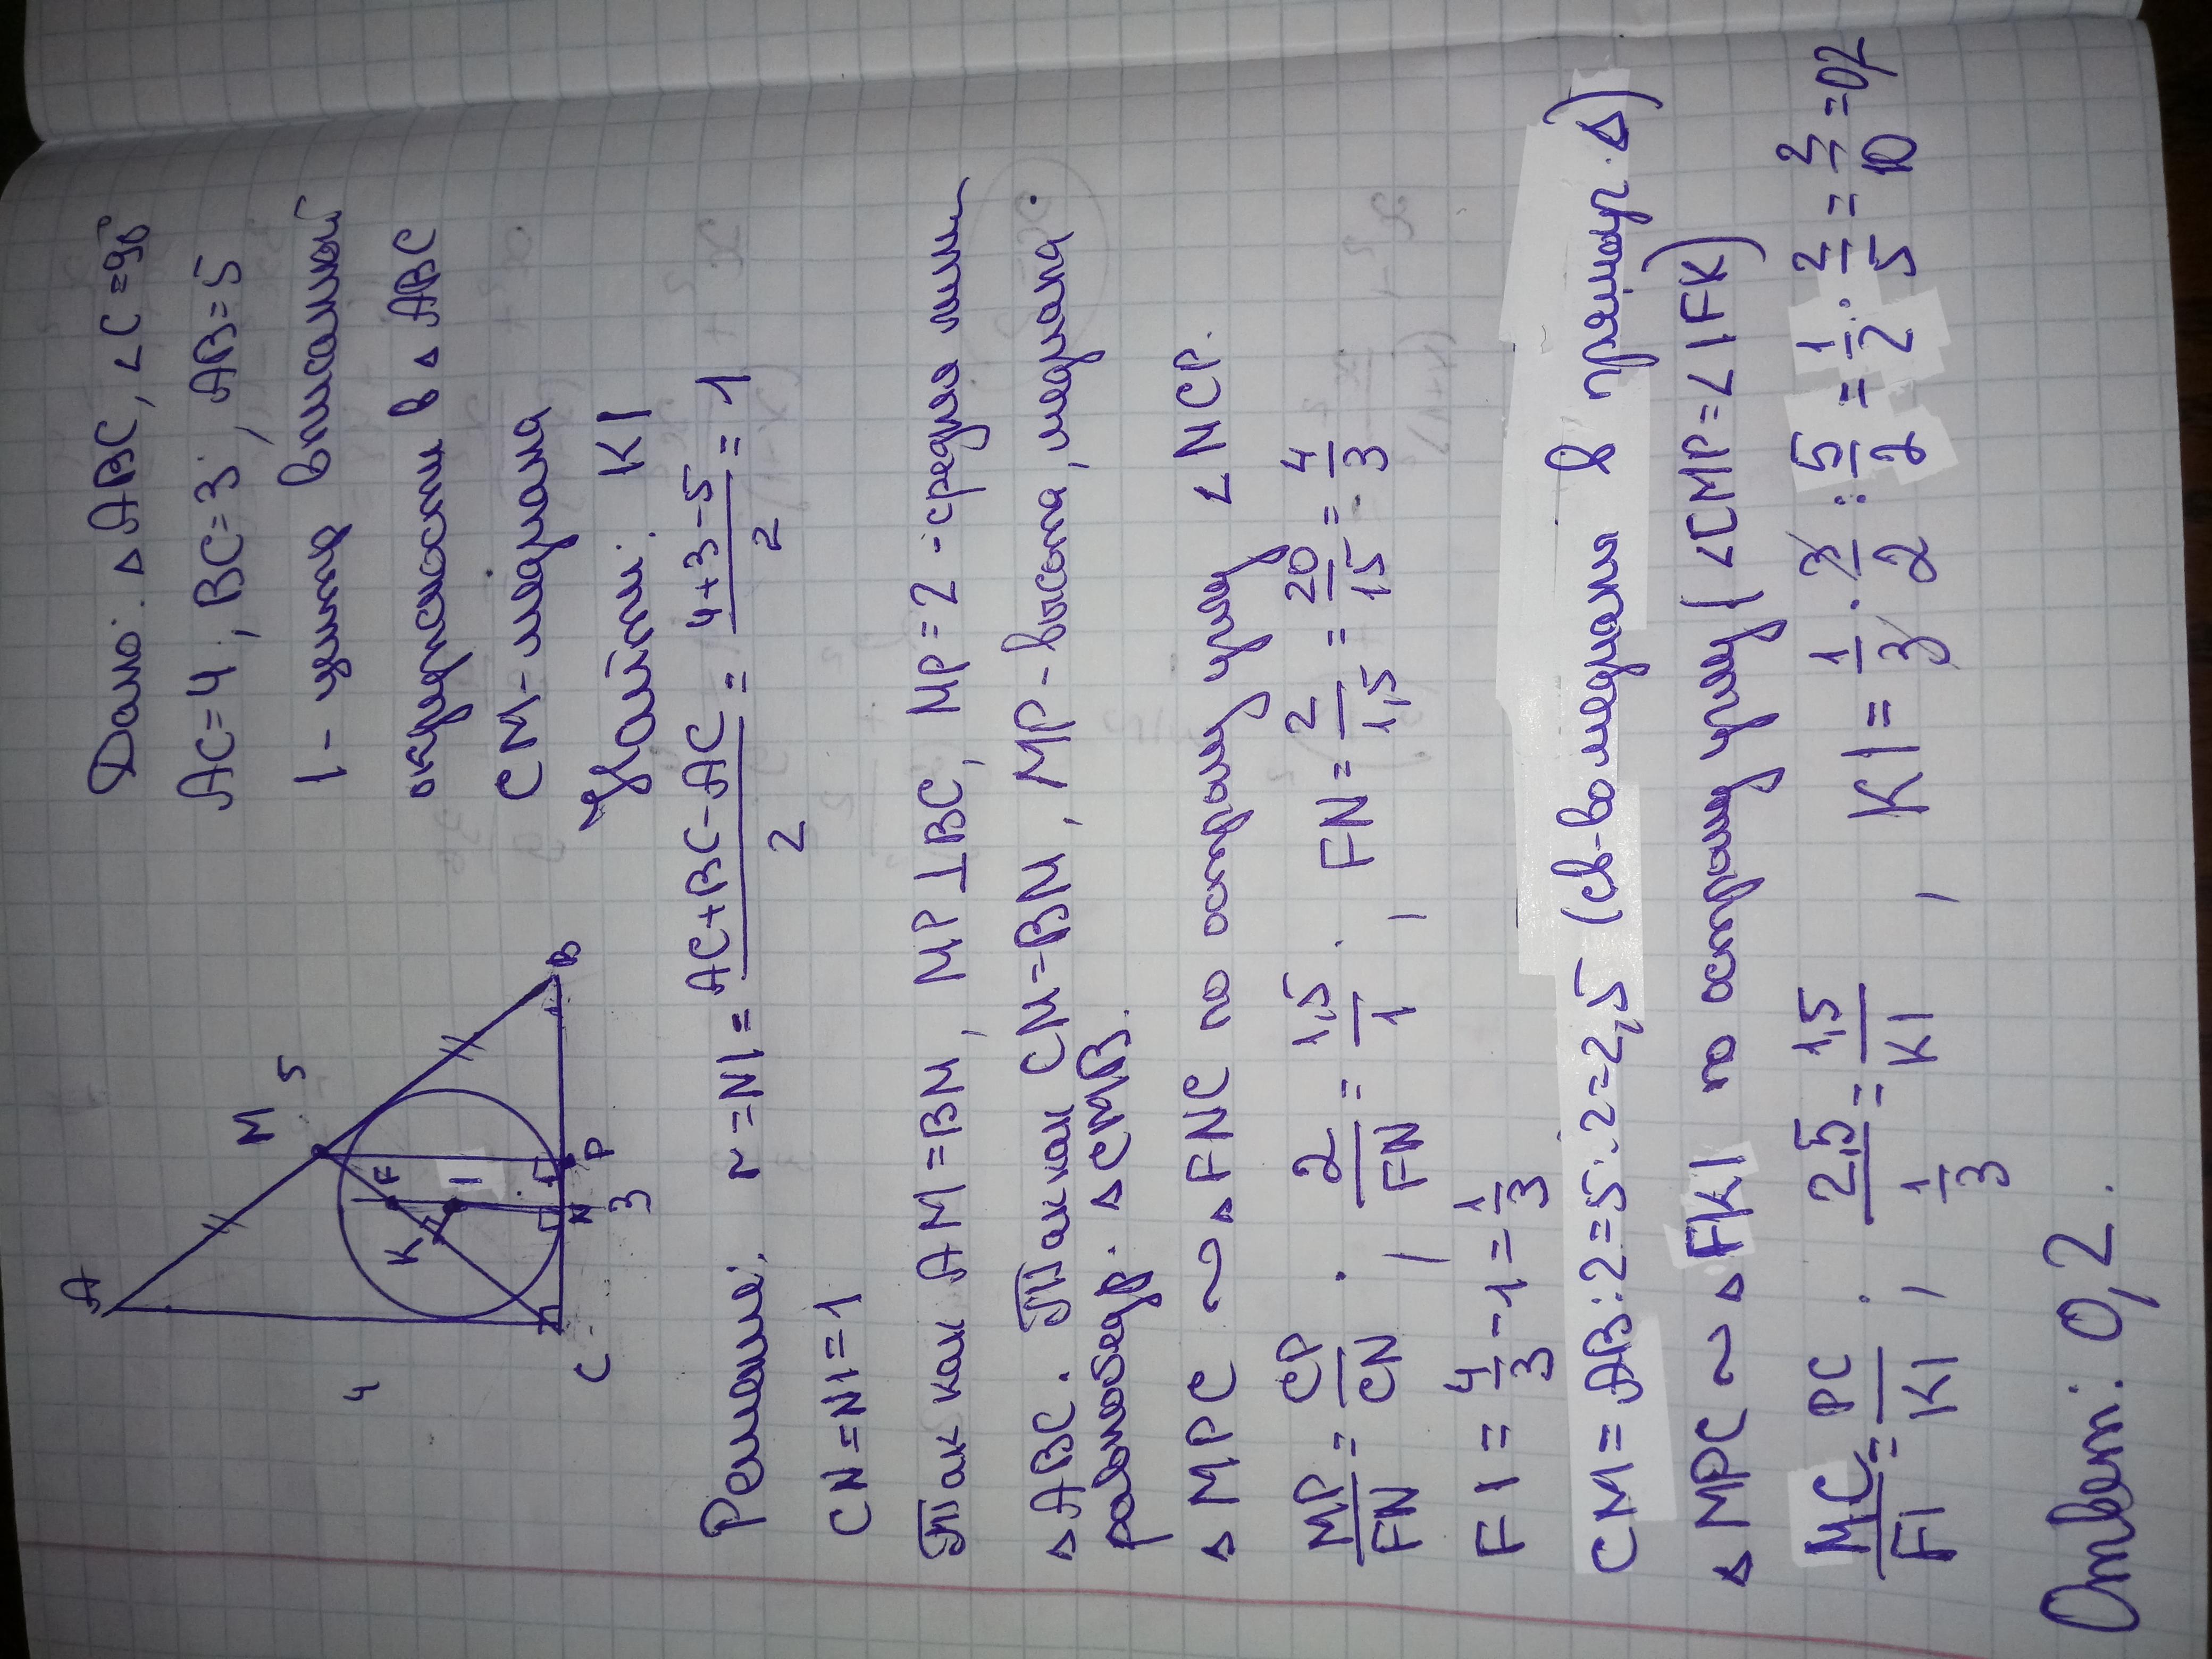 Дано: △ABC, ∠C=90°
AC=4, BC=3, AB=5
I - центр вписанной
окружности в △ABC
CM - медиана
Найти: KI
A
M
5
4
F
K
I
C
N
P
B
3
Решение: r=NI= (AC+BC-AC)/2 = (4+3-5)/2 = 1
CN=NI=1
Так как AM=BM, MP⊥BC, MP=2 - средняя линия
△ABC. Так как CM=BM, MP - высота, медиана
равнобедр. △CMB.
△MPC ∾ △FNC по острому углу ∠NCP.
MP/FN = CP/CN; 2/FN = 1,5/1; FN = 2/1,5 = 20/15 = 4/3
FI = 4/3 - 1 = 1/3
CM = AB:2=5:2=2,5 (св-во медианы в прямоуг. △)
△MPC ∾ △FKI по острому углу (∠CMP=∠IFK)
MC/FI = PC/KI; 2,5/(1/3) = 1,5/KI, KI = 1/3 · 3/2 : 5/2 = 1/2 · 2/5 = 2/10 = 0,2
Ответ: 0,2.